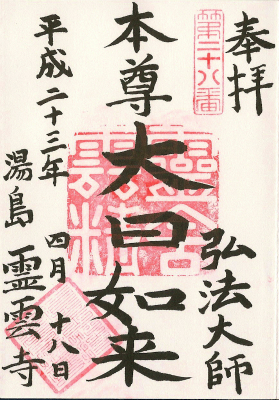 奉拝
第二十八番
弘法大師
本尊 大日如来
平成二十三年 四月 十八日
湯島 霊雲寺